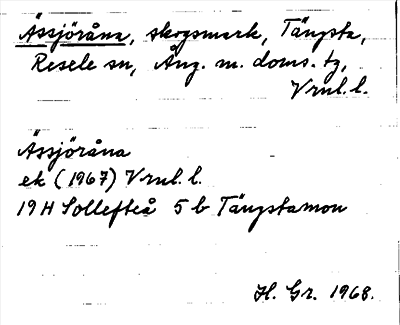 Ässjöråna, skogsmark, Tängsta,
Resele sn, Ång. m. doms. tg,
Vrul. l.
Ässjöråna
ek (1967) Vrul. l.
19 H Sollefteå 5 b Tängstamon
H. Gr. 1968.